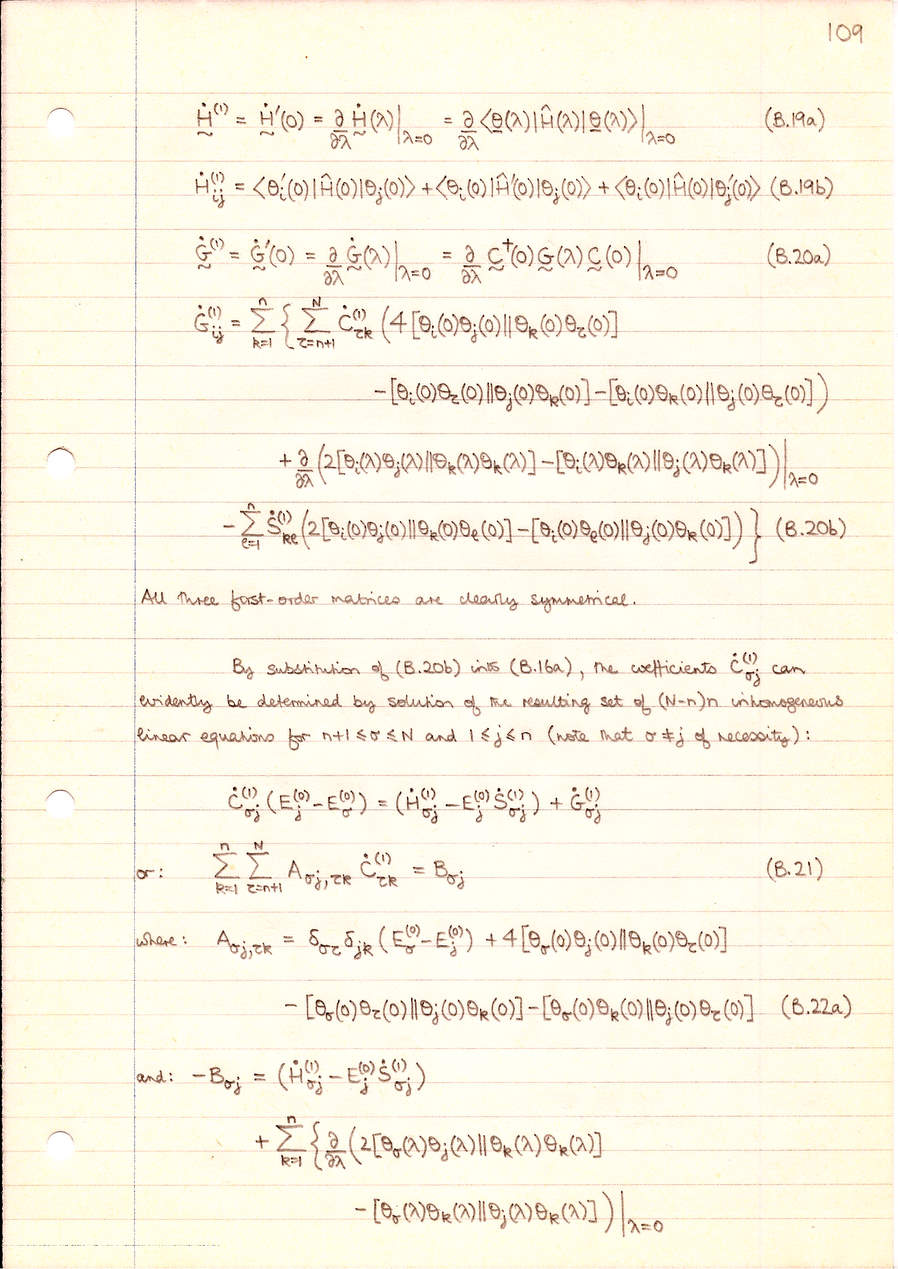 109
Ḣ⁽¹⁾ = Ḣ′(0) = ∂/∂λ Ḣ(λ)|λ=0 = ∂/∂λ ⟨θ(λ)|Ĥ(λ)|θ(λ)⟩|λ=0 (B.19a)
Ḣij⁽¹⁾ = ⟨θi′(0)|Ĥ(0)|θj(0)⟩ + ⟨θi(0)|Ĥ′(0)|θj(0)⟩ + ⟨θi(0)|Ĥ(0)|θj′(0)⟩ (B.19b)
Ġ⁽¹⁾ = Ġ′(0) = ∂/∂λ Ġ(λ)|λ=0 = ∂/∂λ C†(0)G(λ)C(0)|λ=0 (B.20a)
Ġij⁽¹⁾ = Σ_{k=1}^{n} { Σ_{τ=n+1}^{N} Ċτk⁽¹⁾ (4[θi(0)θj(0)||θk(0)θτ(0)]
−[θi(0)θτ(0)||θj(0)θk(0)]−[θi(0)θk(0)||θj(0)θτ(0)])
+ ∂/∂λ (2[θi(λ)θj(λ)||θk(λ)θk(λ)]−[θi(λ)θk(λ)||θj(λ)θk(λ)])|λ=0
− Σ_{ℓ=1}^{n} Ṡkℓ⁽¹⁾ (2[θi(0)θj(0)||θk(0)θℓ(0)]−[θi(0)θℓ(0)||θj(0)θk(0)]) } (B.20b)
All three first-order matrices are clearly symmetrical.
By substitution of (B.20b) into (B.16a), the coefficients Ċσj⁽¹⁾ can
evidently be determined by solution of the resulting set of (N-n)n inhomogeneous
linear equations for n+1 ≤ σ ≤ N and 1 ≤ j ≤ n (note that σ ≠ j of necessity):
Ċσj⁽¹⁾ (Ej⁽⁰⁾ − Eσ⁽⁰⁾) = (Ḣσj⁽¹⁾ − Ej⁽⁰⁾Ṡσj⁽¹⁾) + Ġσj⁽¹⁾
or: Σ_{k=1}^{n} Σ_{τ=n+1}^{N} Aσj,τk Ċτk⁽¹⁾ = Bσj (B.21)
where: Aσj,τk = δστ δjk (Eσ⁽⁰⁾ − Ej⁽⁰⁾) + 4[θσ(0)θj(0)||θk(0)θτ(0)]
− [θσ(0)θτ(0)||θj(0)θk(0)] − [θσ(0)θk(0)||θj(0)θτ(0)] (B.22a)
and: −Bσj = (Ḣσj⁽¹⁾ − Ej⁽⁰⁾Ṡσj⁽¹⁾)
+ Σ_{k=1}^{n} { ∂/∂λ (2[θσ(λ)θj(λ)||θk(λ)θk(λ)]
− [θσ(λ)θk(λ)||θj(λ)θk(λ)])|λ=0